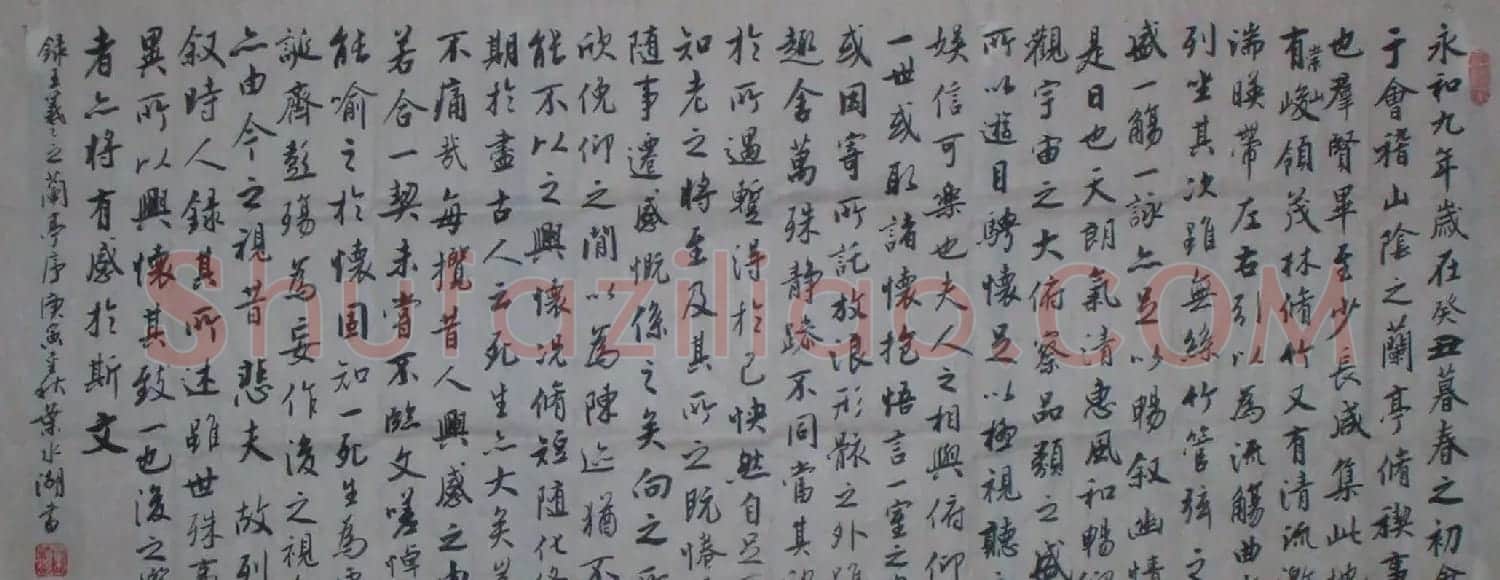 永和九年歲在癸丑暮春之初會
于會稽山陰之蘭亭脩禊事
也羣賢畢至少長咸集此地
有崇山峻領茂林脩竹又有清流激
湍暎帶左右引以為流觴曲
列坐其次雖無絲竹管弦之
盛一觴一詠亦足以暢叙幽情
是日也天朗氣清惠風和暢仰
觀宇宙之大俯察品類之盛
所以遊目騁懷足以極視聽之
娛信可樂也夫人之相與俯仰
一世或取諸懷抱悟言一室之
或因寄所託放浪形骸之外雖
趣舍萬殊静躁不同當其欣
於所遇暫得於己快然自足
知老之將至及其所之既惓
随事遷感慨係之矣向之所
欣俛仰之間以為陳迹猶不
能不以之興懷况脩短随化終
期於盡古人云死生亦大矣豈
不痛哉每攬昔人興感之由
若合一契未嘗不臨文嗟悼
能喻之於懷固知一死生為虛
誕齊彭殤為妄作後之視今
亦由今之視昔悲夫故列
叙時人録其所述雖世殊事
異所以興懷其致一也後之
者亦將有感於斯文
録王羲之之蘭亭序庚寅秋葉水湖書
Shufaziliao.COM